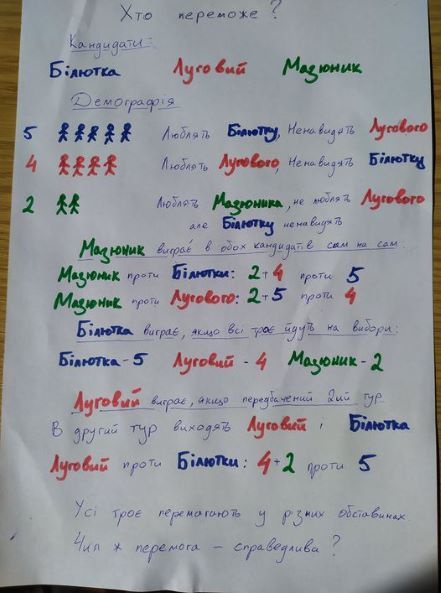 Хто переможе?
Кандидати:
Білютка Луговий Мазюник
Демографія
5 Люблять Білютку, Ненавидять Лугового
4 Люблять Лугового, Ненавидять Білютку
2 Люблять Мазюника, не люблять Лугового
але Білютку ненавидять
Мазюник виграє в обох кандидатів сам на сам.
Мазюник проти Білютки: 2+4 проти 5
Мазюник проти Лугового: 2+5 проти 4
Білютка виграє, якщо всі троє йдуть на вибори:
Білютка - 5 Луговий - 4 Мазюник - 2
Луговий виграє, якщо передбачений 2ий тур
В другий тур виходять Луговий і Білютка
Луговий проти Білютки: 4+2 проти 5
Усі троє перемагають у різних обставинах.
Чия ж перемога - справедлива?